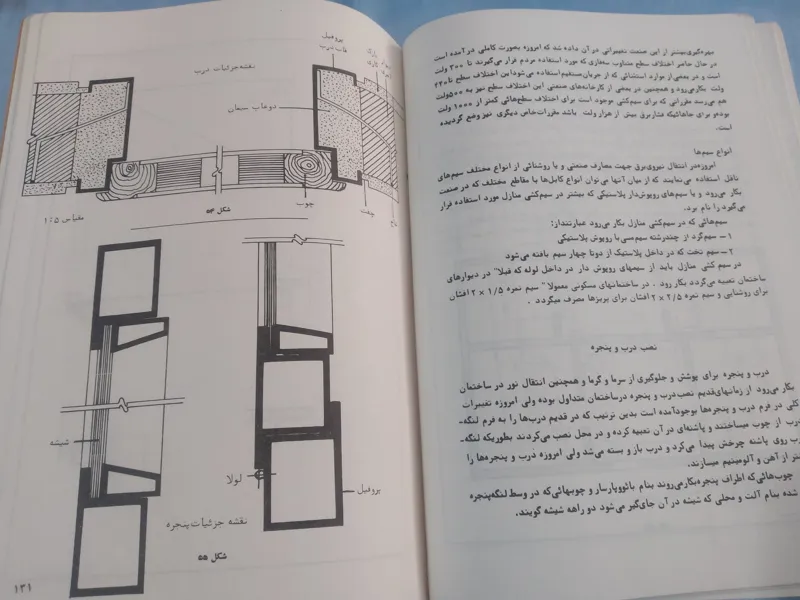 بهره‌گیری‌بیشتر از این صنعت تغییراتی در آن داده شد که امروزه بصورت کاملی در آمده است
در حال حاضر اختلاف سطح متناوب سه‌فازی که مورد استفاده مردم قرار می‌گیرند تا ۳۰۰ ولت
است و در بعضی از موارد استثنائی که از جریان مستقیم استفاده می‌شود این اختلاف سطح تا ۲۲۰
ولت بکار می‌رود و همچنین در بعضی از کارخانه‌های صنعتی این اختلاف سطح نیز به ۵۰۰ ولت
هم می‌رسد مقرراتی که برای سیم‌کشی موجود است برای اختلاف سطح‌هائی کمتر از ۱۰۰۰ ولت
بوده‌و برای جاهائیکه فشار برق بیش از هزار ولت باشد مقررات خاص دیگری نیز وضع گردیده
است.
انواع سیم‌ها
امروزه‌در انتقال نیروی‌برق جهت مصارف صنعتی و یا روشنائی از انواع مختلف سیم‌های
ناقل استفاده می‌نمایند که از میان آنها می‌توان انواع کابل‌ها با مقاطع مختلف که در صنعت
بکار می‌رود و یا سیم‌های روپوش‌دار پلاستیکی که بیشتر در سیم‌کشی منازل مورد استفاده قرار
می‌گیرد را نام برد.
سیم‌هائی که در سیم‌کشی منازل بکار می‌رود عبارتند‌از:
۱ – سیم‌گرد از چند‌رشته سیم‌مسی‌با روپوش پلاستیکی
۲ – سیم تخت که در داخل پلاستیک از دو‌تا چهار سیم بافته می‌شود
در سیم کشی منازل باید از سیمهای روپوش دار در داخل لوله که قبلا" در دیوارهای
ساختمان تعبیه می‌گردد بکار رود . در ساختمانهای مسکونی معمولا" سیم نمره ۱/۵ × ۲ افشان
برای روشنایی و سیم نمره ۲/۵ × ۲ افشان برای پریزها مصرف میگردد .
نصب درب و پنجره
درب و پنجره برای پوشش و جلوگیری از سرما و گرما و همچنین انتقال نور در ساختمان
بکار می‌رود از زمانهای‌قدیم نصب‌درب و پنجره در‌ساختمان متداول بوده ولی امروزه تغییرات
کلی در فرم درب و پنجره‌ها بوجود‌آمده است بدین ترتیب که در قدیم درب‌ها را به فرم لنگه-
درب از چوب میساختند و پاشنه‌ای در آن تعبیه کرده و در محل نصب می‌کردند بطوریکه لنگه-
روی پاشنه چرخش پیدا می‌کرد و درب باز و بسته می‌شد ولی امروزه درب و پنجره‌ها را
از آهن و آلومینیم میسازند.
چوب‌هائی‌که اطراف پنجره‌بکار‌می‌روند بنام بائو‌و‌پارسار و چوبهائی‌که در وسط لنگه‌پنجره
شده بنام آلت و محلی که شیشه در آن جای‌گیر می‌شود دو راهه شیشه گویند.
نقشه جزئیات درب
پروفیل
قاب درب
دوغاب سیمان
شکل ۵۴
چوب
چفت
مقیاس ۱:۵
شیشه
لولا
پروفیل
نقشه جزئیات پنجره
شکل ۵۵
۱۳۱